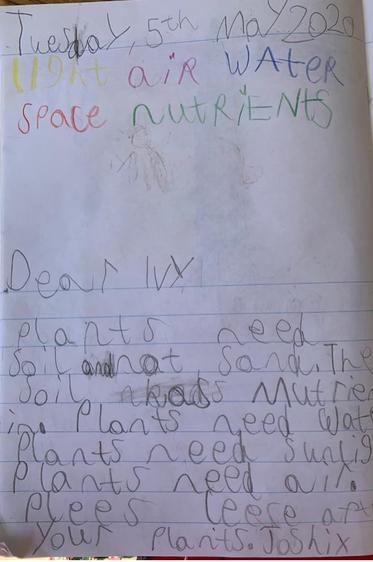 Tuesday, 5th May 2020
Light air WAteR
space nutRiENtS
Dear Ivy
plants need
Soil and not Sand. The
Soil has Nutrie
in. Plants need Wat
Plants need Sunlig
Plants need air.
Plees
your plants. Joshix